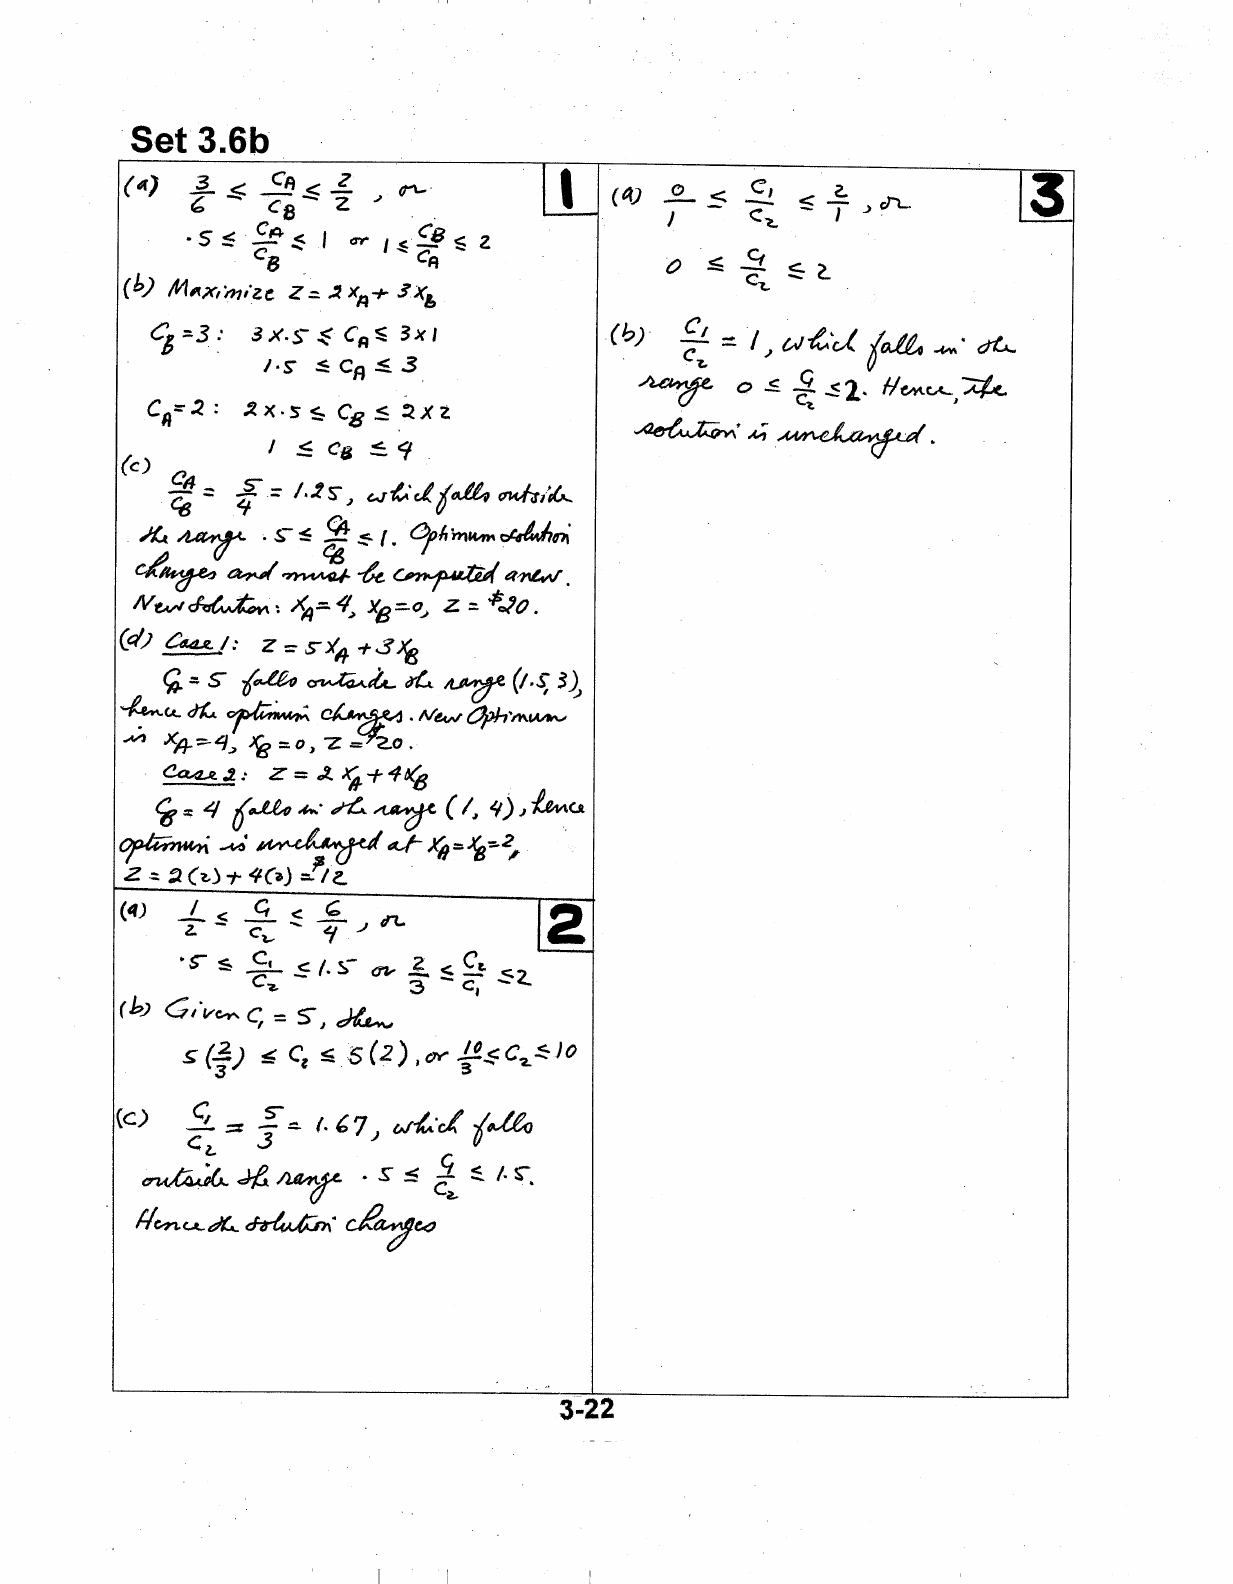 Set 3.6b
1
(a) 3/6 ≤ C_A/C_B ≤ 2/2 , or
.5 ≤ C_A/C_B ≤ 1 or 1 ≤ C_B/C_A ≤ 2
(b) Maximize Z = 2X_A + 3X_B
C_B = 3 : 3X.5 ≤ C_A ≤ 3X1
1.5 ≤ C_A ≤ 3
C_A = 2 : 2X.5 ≤ C_B ≤ 2X2
1 ≤ C_B ≤ 4
(c)
C_A/C_B = 5/4 = 1.25, which falls outside
the range .5 ≤ C_A/C_B ≤ 1. Optimum solution
changes and must be computed anew.
New Solution : X_A = 4, X_B = 0, Z = $20.
(d) Case 1: Z = 5X_A + 3X_B
C_A = 5 falls outside the range (1.5, 3),
hence the optimum changes. New Optimum
is X_A = 4, X_B = 0, Z = $20.
Case 2: Z = 2X_A + 4X_B
C_B = 4 falls in the range (1, 4), hence
optimum is unchanged at X_A = X_B = 2,
Z = 2(2) + 4(2) = $12
2
(a) 1/2 ≤ C_1/C_2 ≤ 6/4 , or
.5 ≤ C_1/C_2 ≤ 1.5 or 2/3 ≤ C_2/C_1 ≤ 2
(b) Given C_1 = 5, then
5(2/3) ≤ C_2 ≤ 5(2), or 10/3 ≤ C_2 ≤ 10
(c) C_1/C_2 = 5/3 = 1.67, which falls
outside the range .5 ≤ C_1/C_2 ≤ 1.5.
Hence the solution changes
3
(a) 0/1 ≤ C_1/C_2 ≤ 2/1 , or
0 ≤ C_1/C_2 ≤ 2
(b) C_1/C_2 = 1, which falls in the
range 0 ≤ C_1/C_2 ≤ 2. Hence, the
solution is unchanged.
3-22